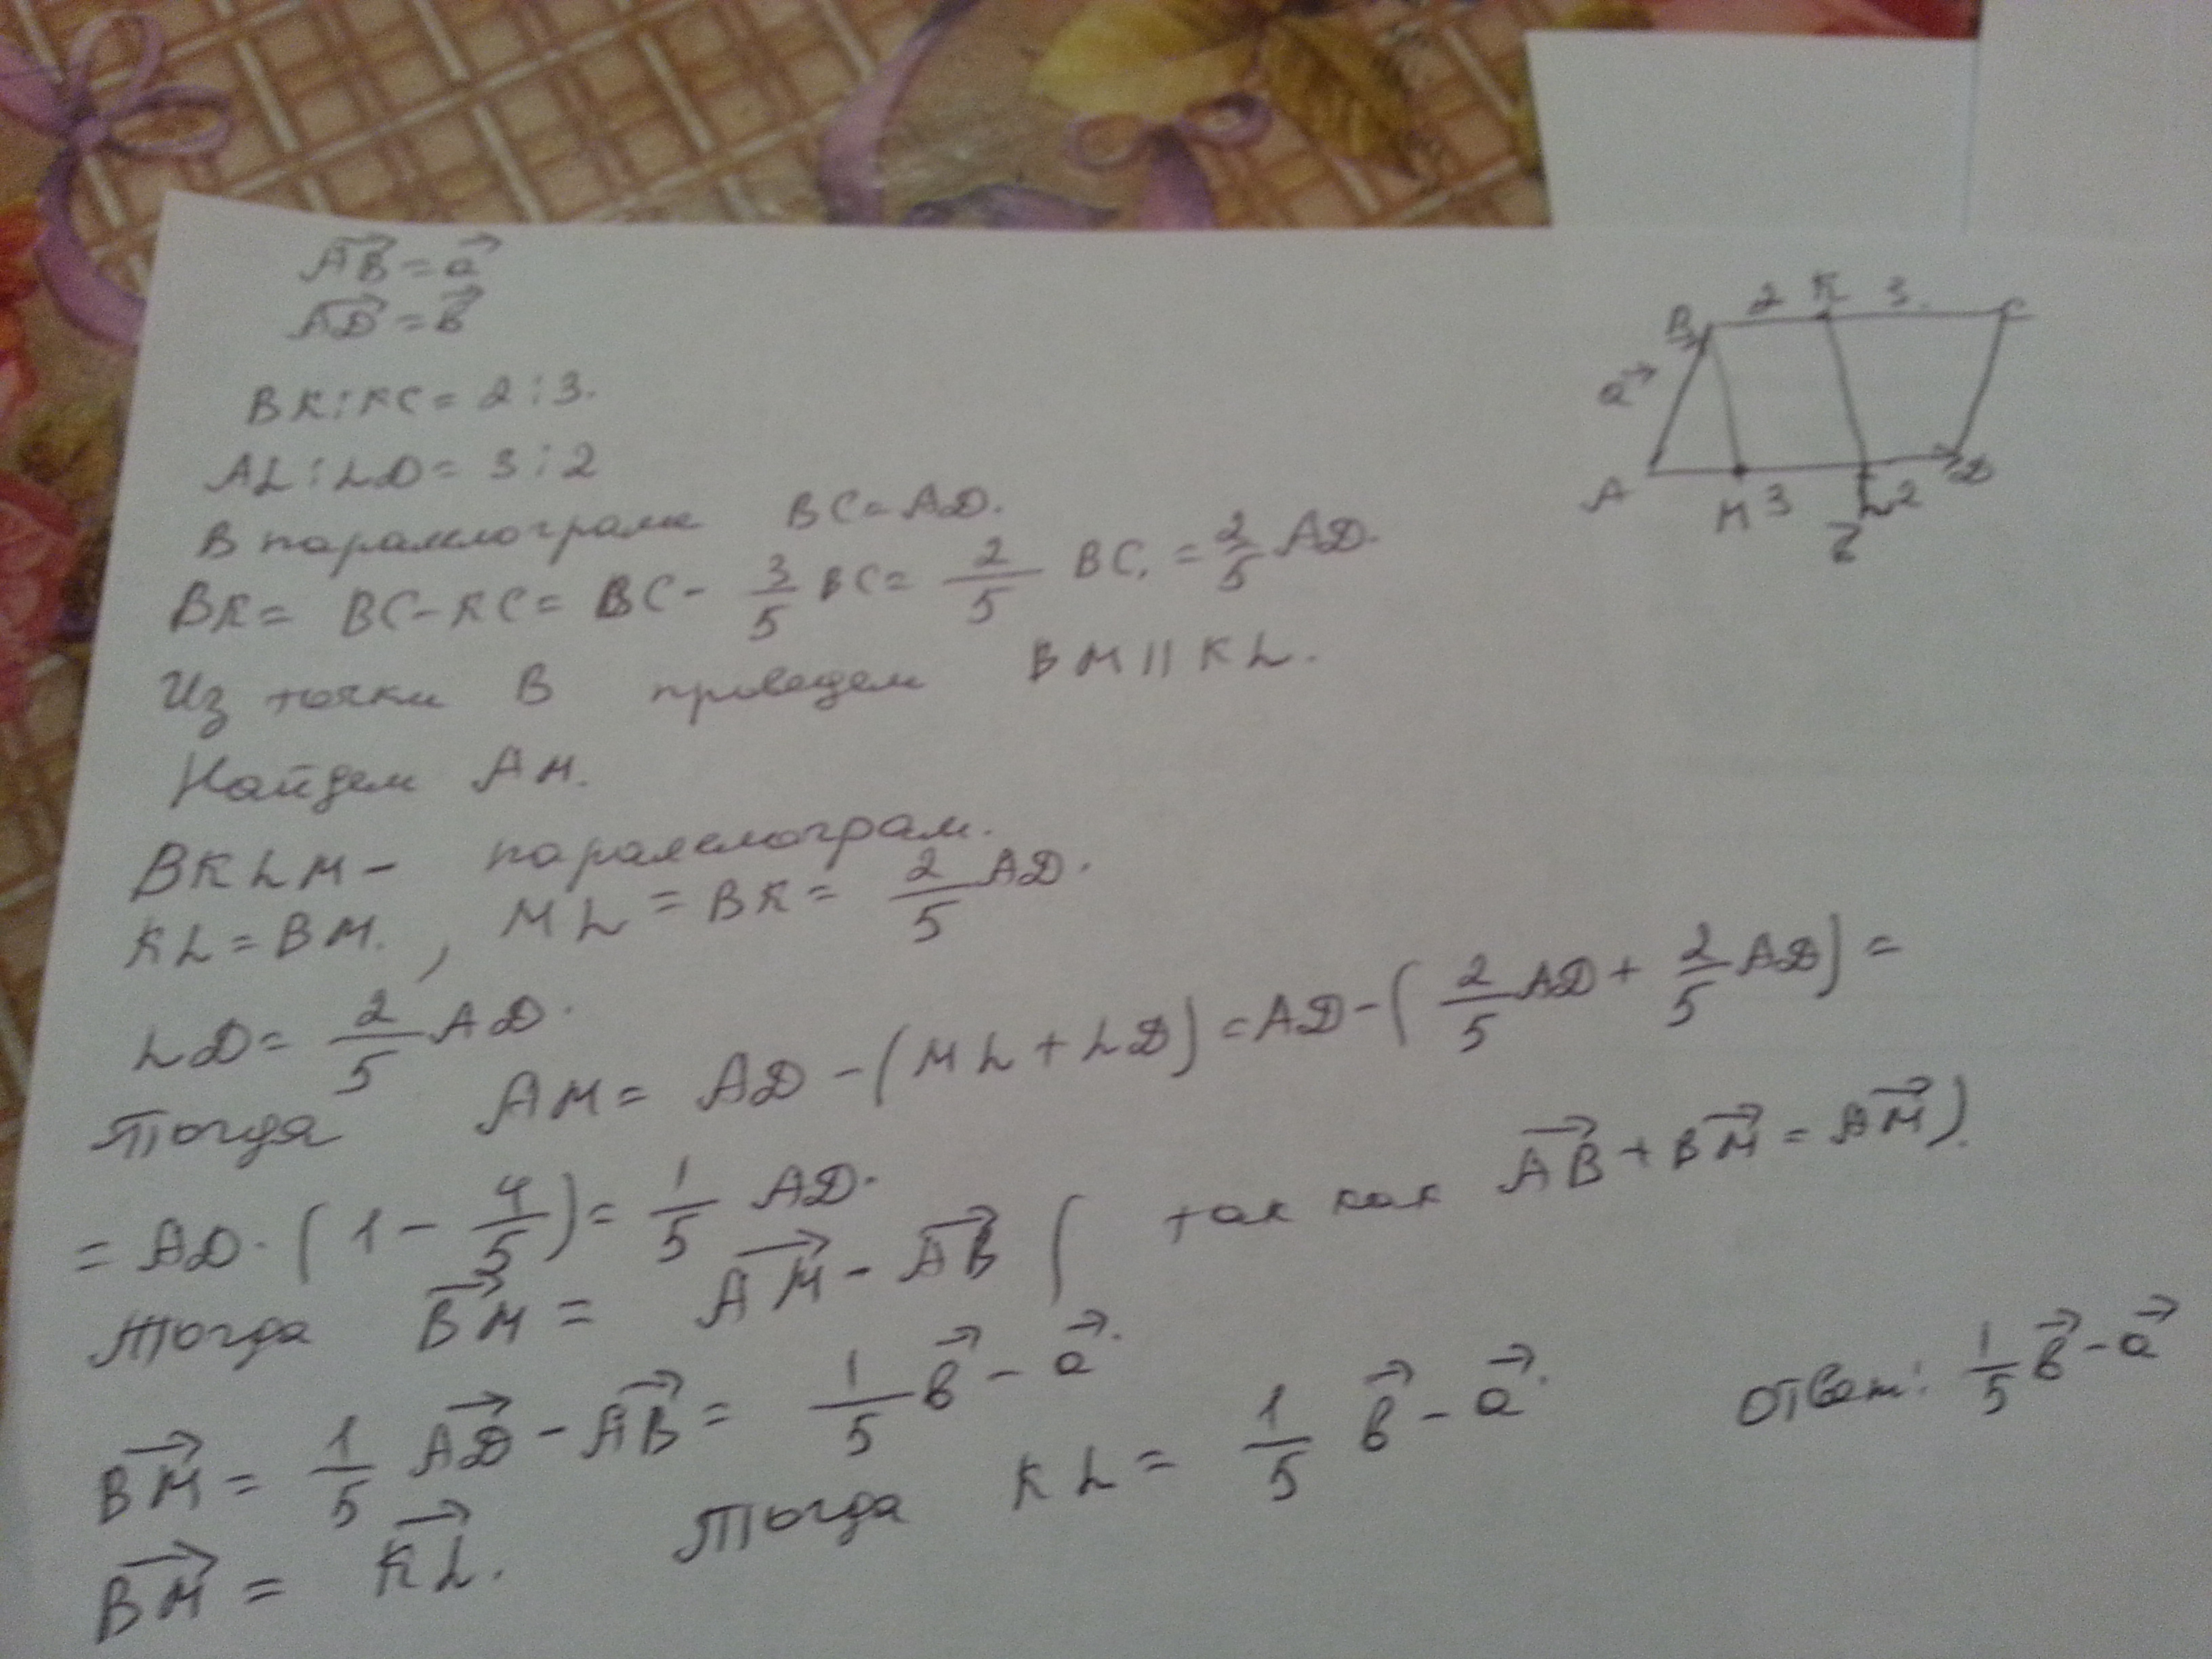 AB = a
AD = в
BK : KC = 2 : 3.
AL : LD = 3 : 2
В паралелограме BC = AD.
BK = BC - KC = BC - 3/5 BC = 2/5 BC. = 2/5 AD.
Из точки B проведем BM || KL.
Найдем AM.
BKLM - паралелограм.
KL = BM. , ML = BK = 2/5 AD.
LD = 2/5 AD.
Тогда AM = AD - (ML + LD) = AD - (2/5 AD + 2/5 AD) =
= AD · (1 - 4/5) = 1/5 AD.
Тогда BM = AM - AB (так как AB + BM = AM).
BM = 1/5 AD - AB = 1/5 в - a.
BM = KL. Тогда KL = 1/5 в - a.
Ответ: 1/5 в - a
B 2 K 3. C
a
A M 3 L 2 D
в